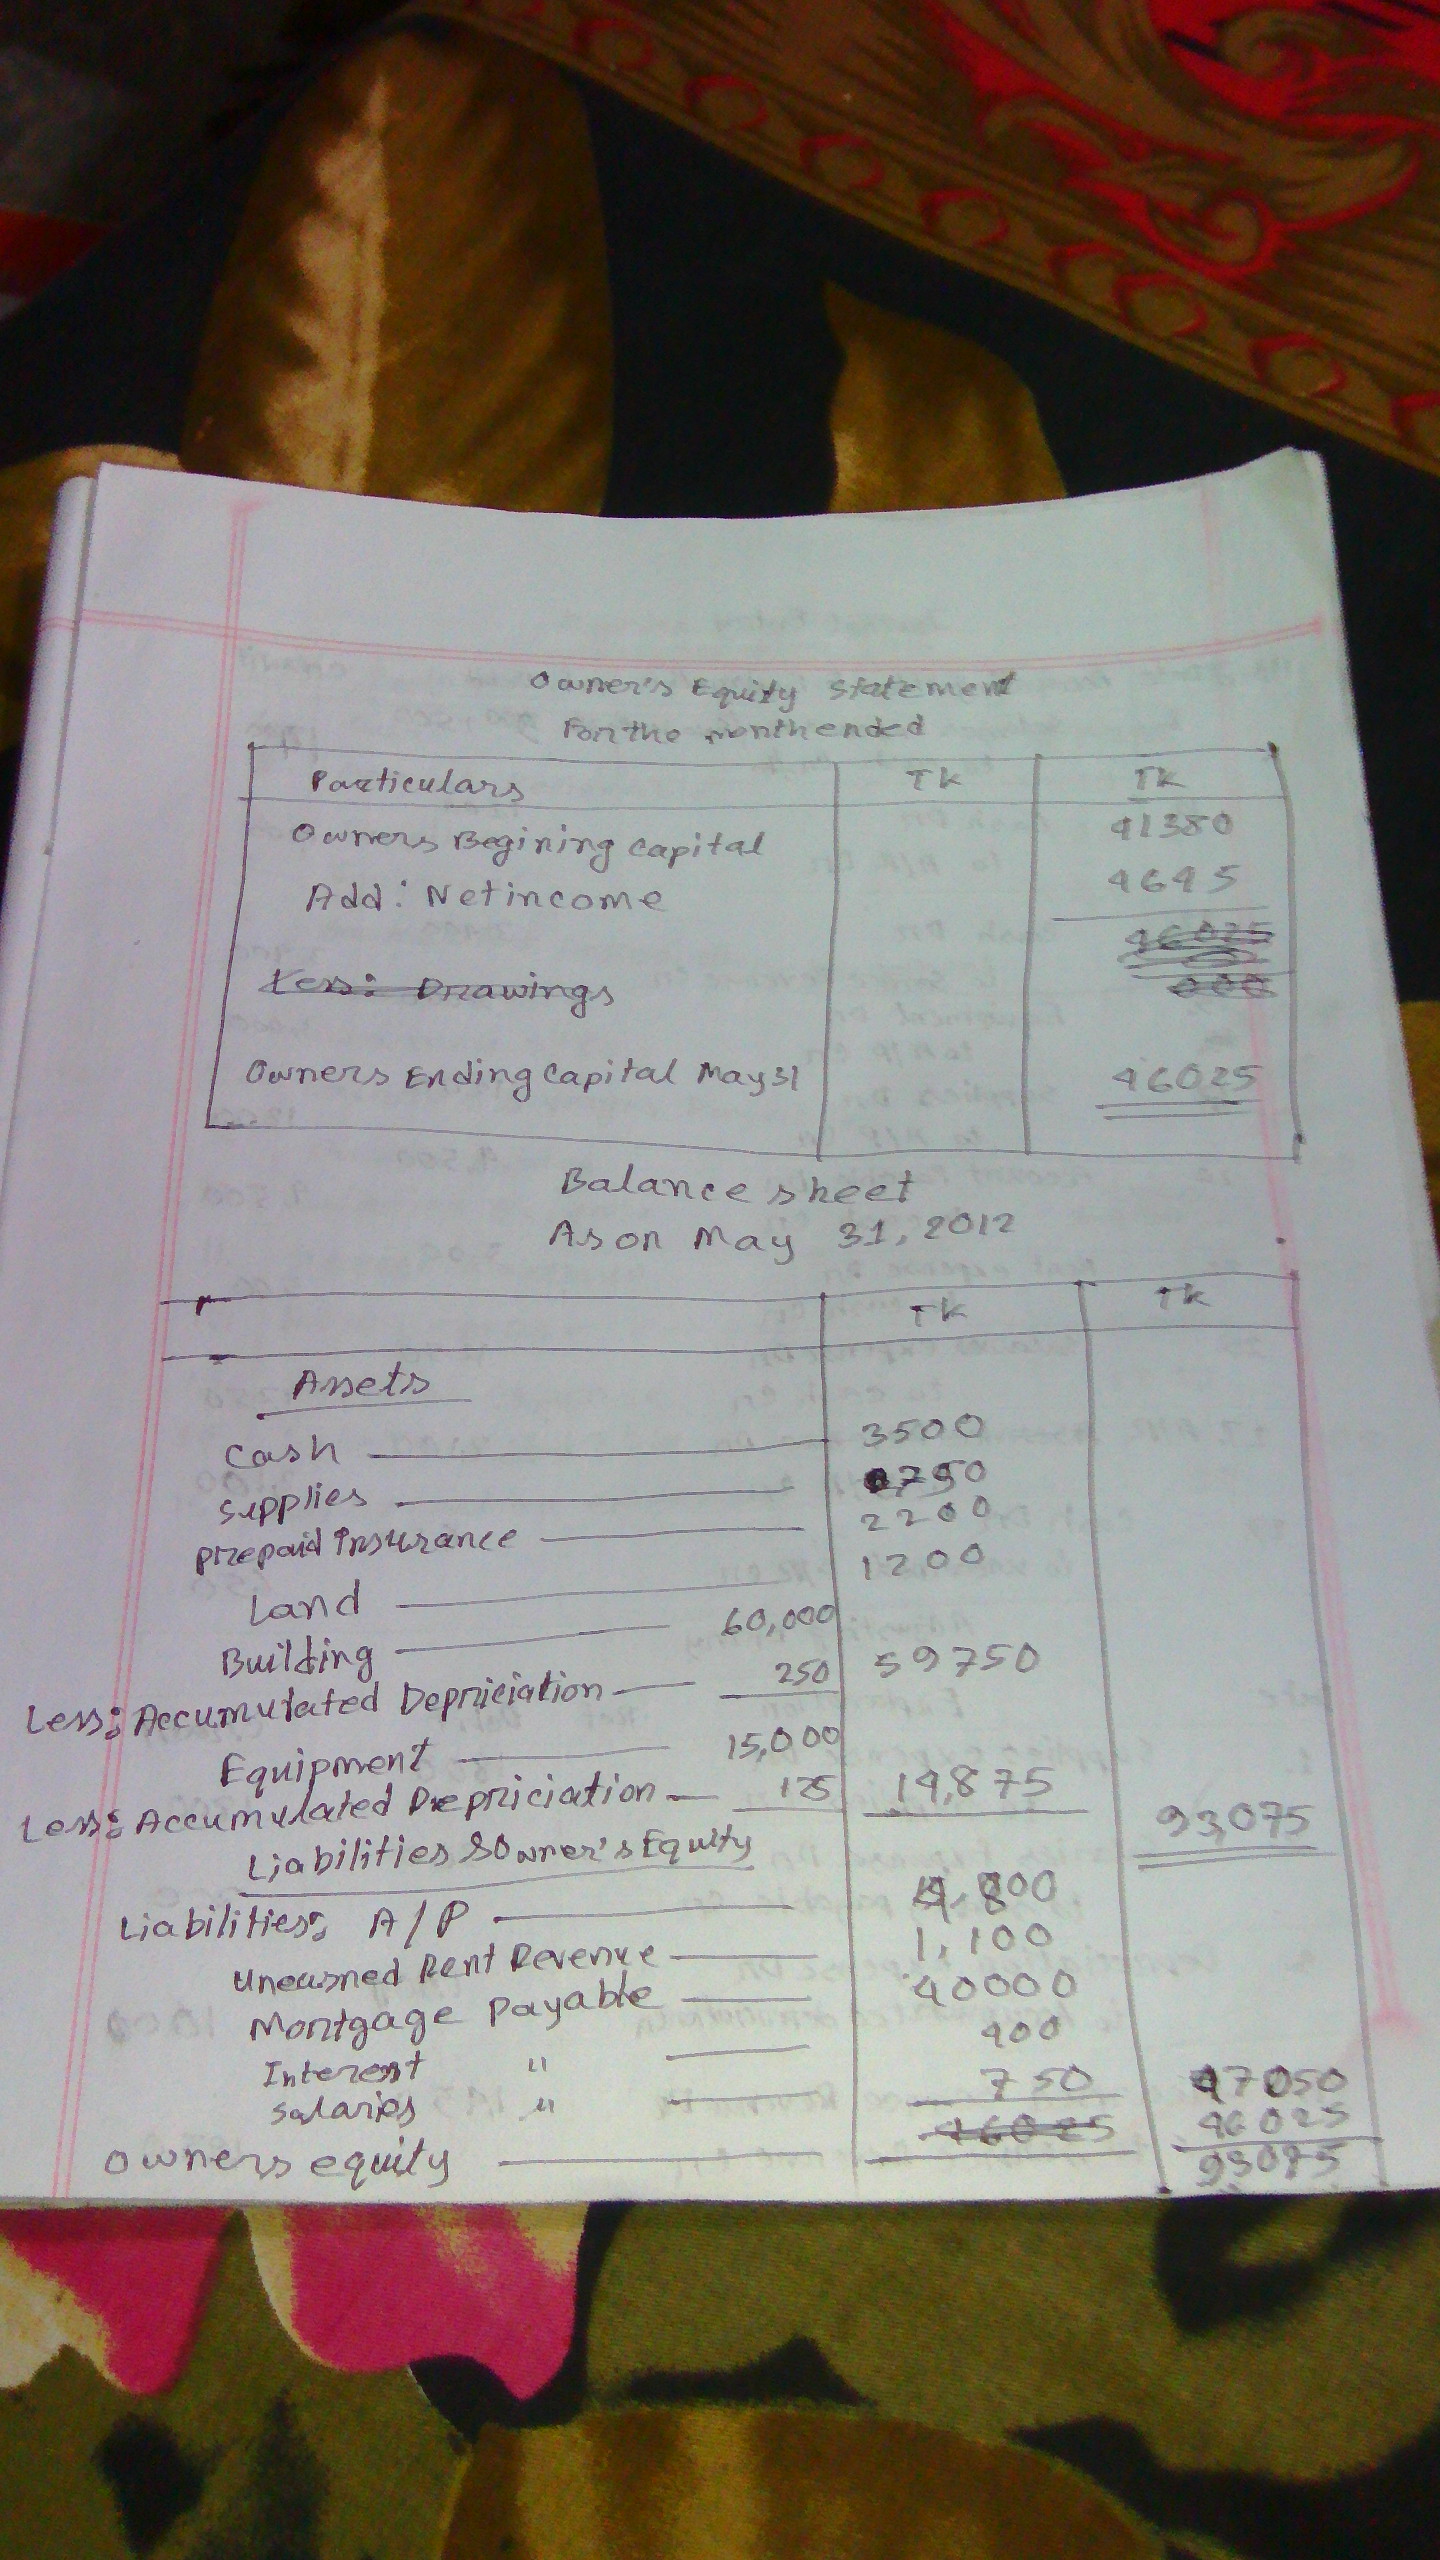 Owner's Equity Statement
For the month ended
Particulars Tk Tk
Owners Begining Capital 41380
Add: Net income 4645
46025
Less: Drawings 000
Owners Ending Capital May 31 46025
Balance sheet
As on May 31, 2012
Tk Tk
Assets
Cash 3500
Supplies 750
Prepaid Insurance 2200
1200
Land
Building 60,000
Less: Accumulated Depriciation 250 59750
Equipment 15,000
Less: Accumulated Depriciation 125 14,875 93,075
Liabilities & Owner's Equity
Liabilities: A/P 4,800
Unearned Rent Revenue 1,100
Mortgage Payable 40000
Interest " 400
Salaries " 750 47050
Owners equity 46025 46025
93075